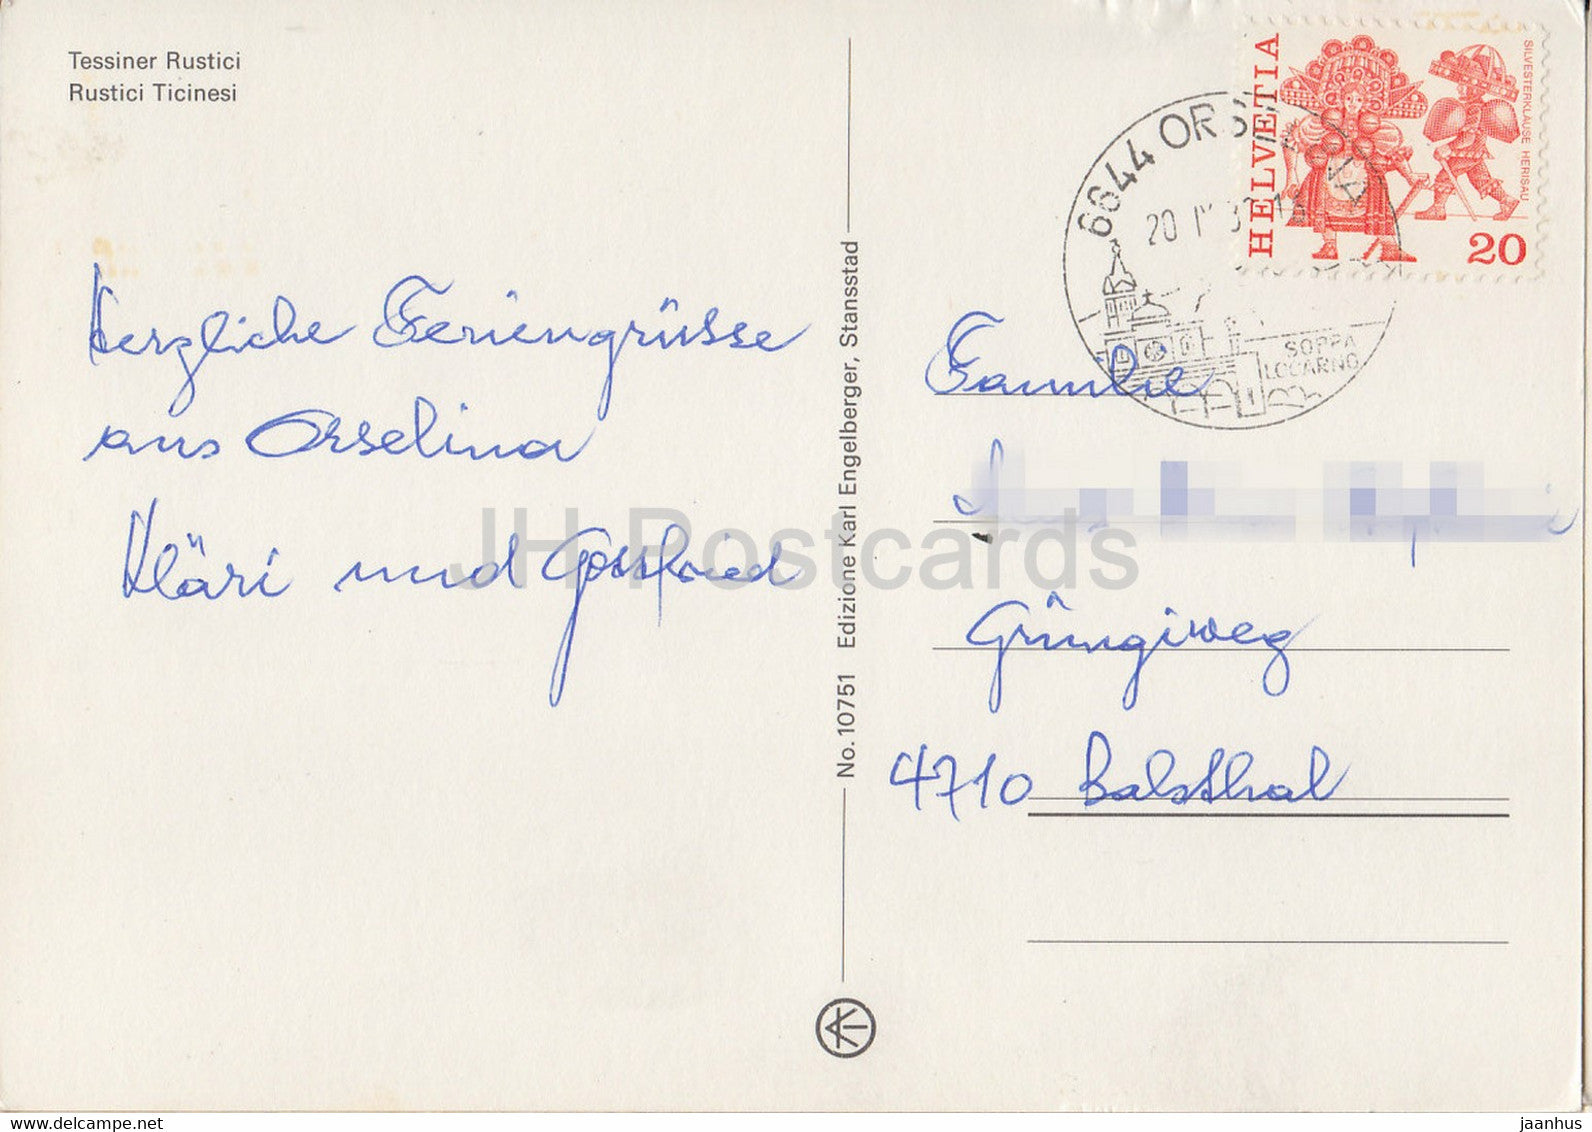 Tessiner Rustici
Rustici Ticinesi
Herzliche Feriengrüsse
aus Orselina
Kläri und Gottfried
No. 10751 Edizione Karl Engelberger, Stansstad
HELVETIA
SILVESTERKLÄUSE HERISAU
20
6644 ORSELINA
20
SOPRA
LOCARNO
Familie
Grüngiweg
4710 Balsthal
JH Postcards
www.delcampe.net
jaanhus